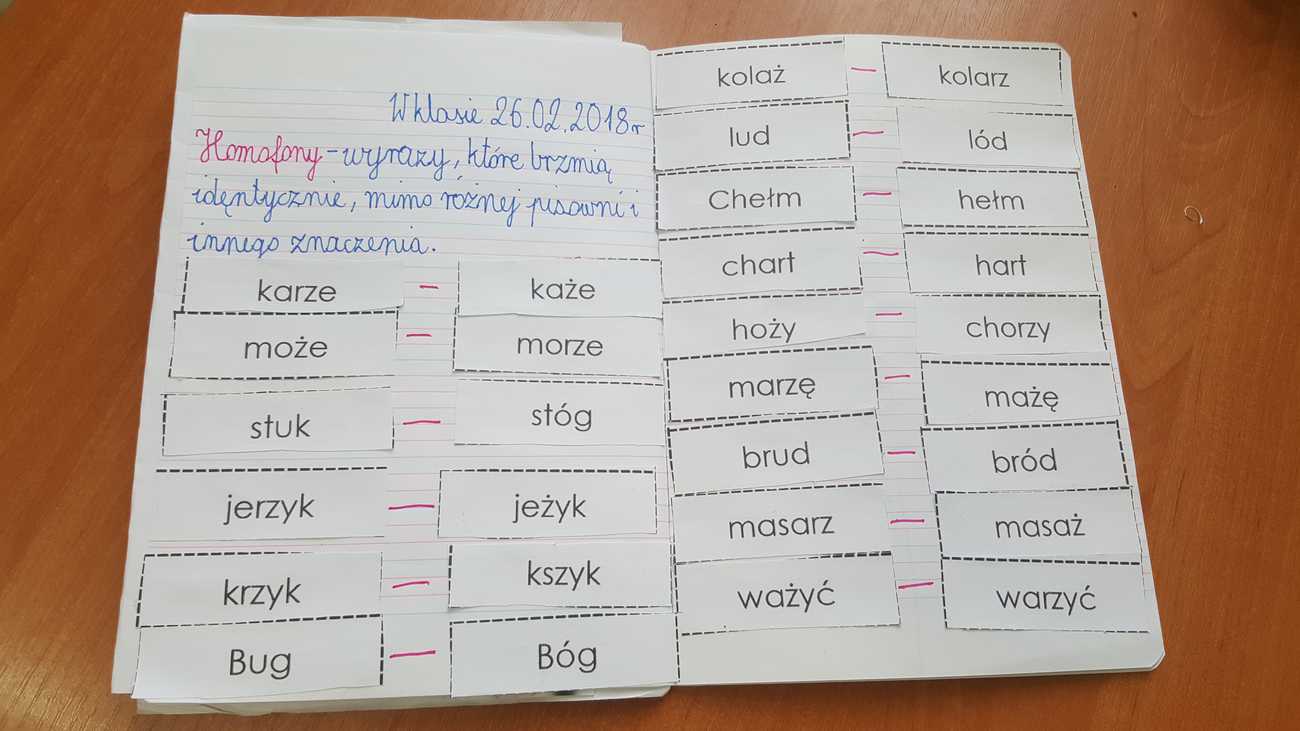 W klasie 26.02.2018r
Homofony - wyrazy, które brzmią
idęntycznie, mimo różnej pisowni i
innego znaczenia.
karze - każe
może - morze
stuk - stóg
jerzyk - jeżyk
krzyk - kszyk
Bug - Bóg
kolaż - kolarz
lud - lód
Chełm - hełm
chart - hart
hoży - chorzy
marzę - mażę
brud - bród
masarz - masaż
ważyć - warzyć